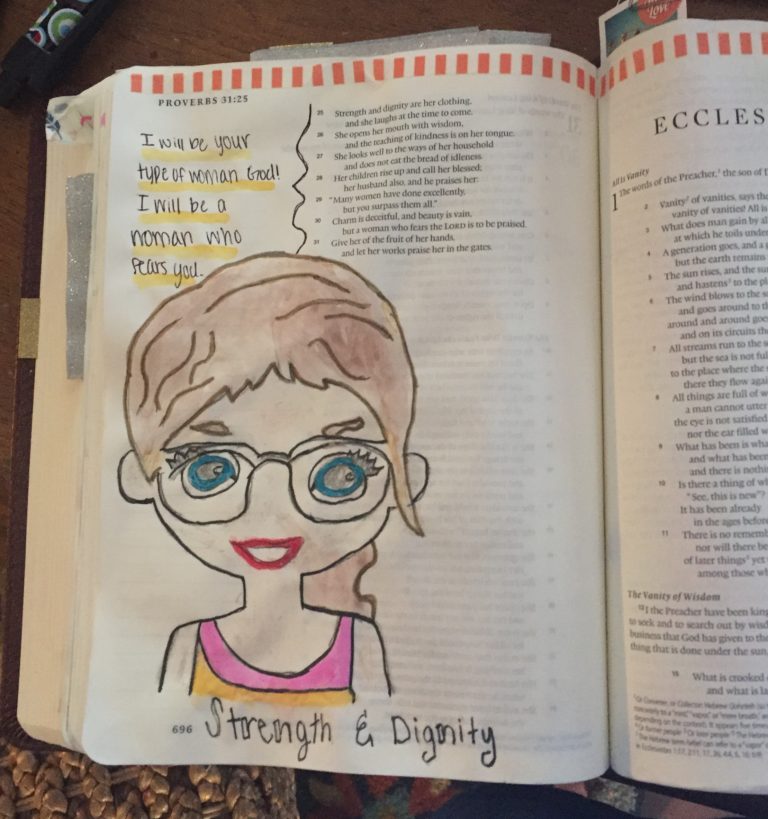 Love
PROVERBS 31:25
I will be your
type of woman God!
I will be a
woman who
fears you.
25 Strength and dignity are her clothing,
and she laughs at the time to come.
26 She opens her mouth with wisdom,
and the teaching of kindness is on her tongue.
27 She looks well to the ways of her household
and does not eat the bread of idleness.
28 Her children rise up and call her blessed;
her husband also, and he praises her:
29 "Many women have done excellently,
but you surpass them all."
30 Charm is deceitful, and beauty is vain,
but a woman who fears the LORD is to be praised.
31 Give her of the fruit of her hands,
and let her works praise her in the gates.
696 Strength & Dignity
ECCLES
All Is Vanity
1 The words of the Preacher,¹ the son of
2 Vanity² of vanities, says the
vanity of vanities! All is
3 What does man gain by al
at which he toils under
4 A generation goes, and a
but the earth remains
5 The sun rises, and the su
and hastens³ to the pl
6 The wind blows to the s
and goes around to th
around and around goe
and on its circuits th
7 All streams run to the s
but the sea is not ful
to the place where the s
there they flow agai
8 All things are full of w
a man cannot utter
the eye is not satisfied
nor the ear filled w
9 What has been is wha
and what has been
and there is nothi
10 Is there a thing of wh
"See, this is new"?
It has been already
in the ages before
11 There is no rememb
nor will there be
of later things⁵ yet
among those wh
The Vanity of Wisdom
12 I the Preacher have been king
to seek and to search out by wisd
business that God has given to the
thing that is done under the sun,
15 What is crooked
and what is la